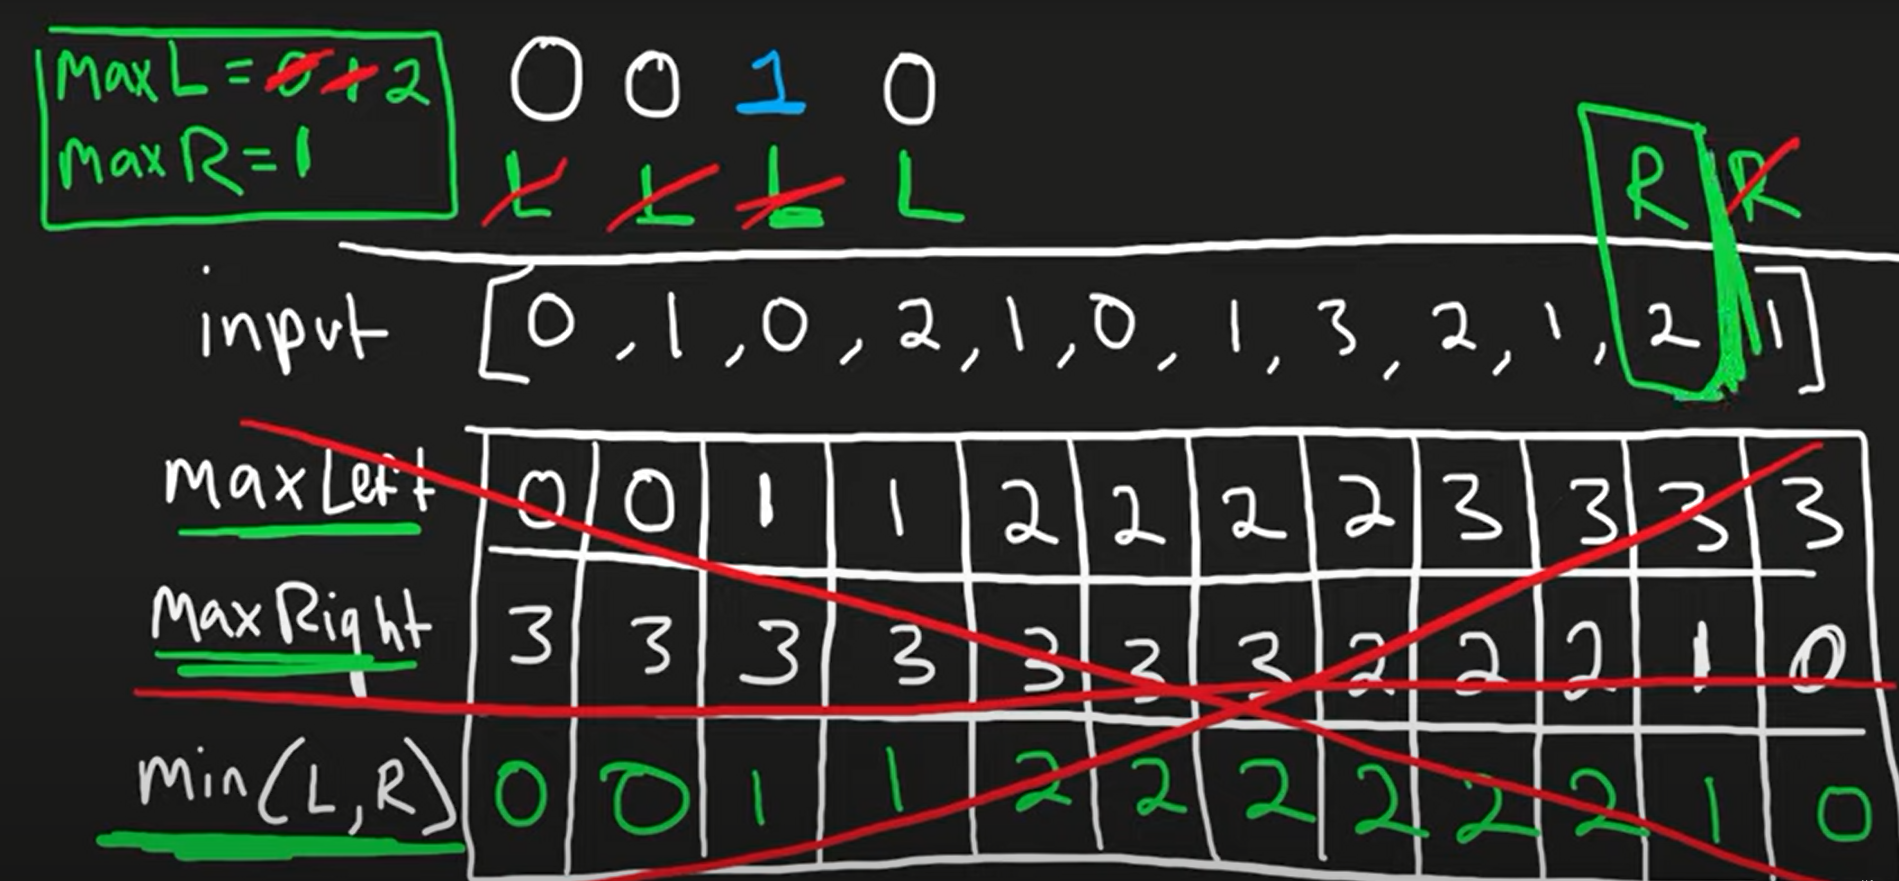 maxL = 0 1 2
maxR = 1
0 0 1 0
L L L L R R
input [0, 1, 0, 2, 1, 0, 1, 3, 2, 1, 2 1]
maxLeft 0 0 1 1 2 2 2 2 3 3 3 3
MaxRight 3 3 3 3 3 3 3 2 2 2 1 0
Min(L,R) 0 0 1 1 2 2 2 2 2 2 1 0